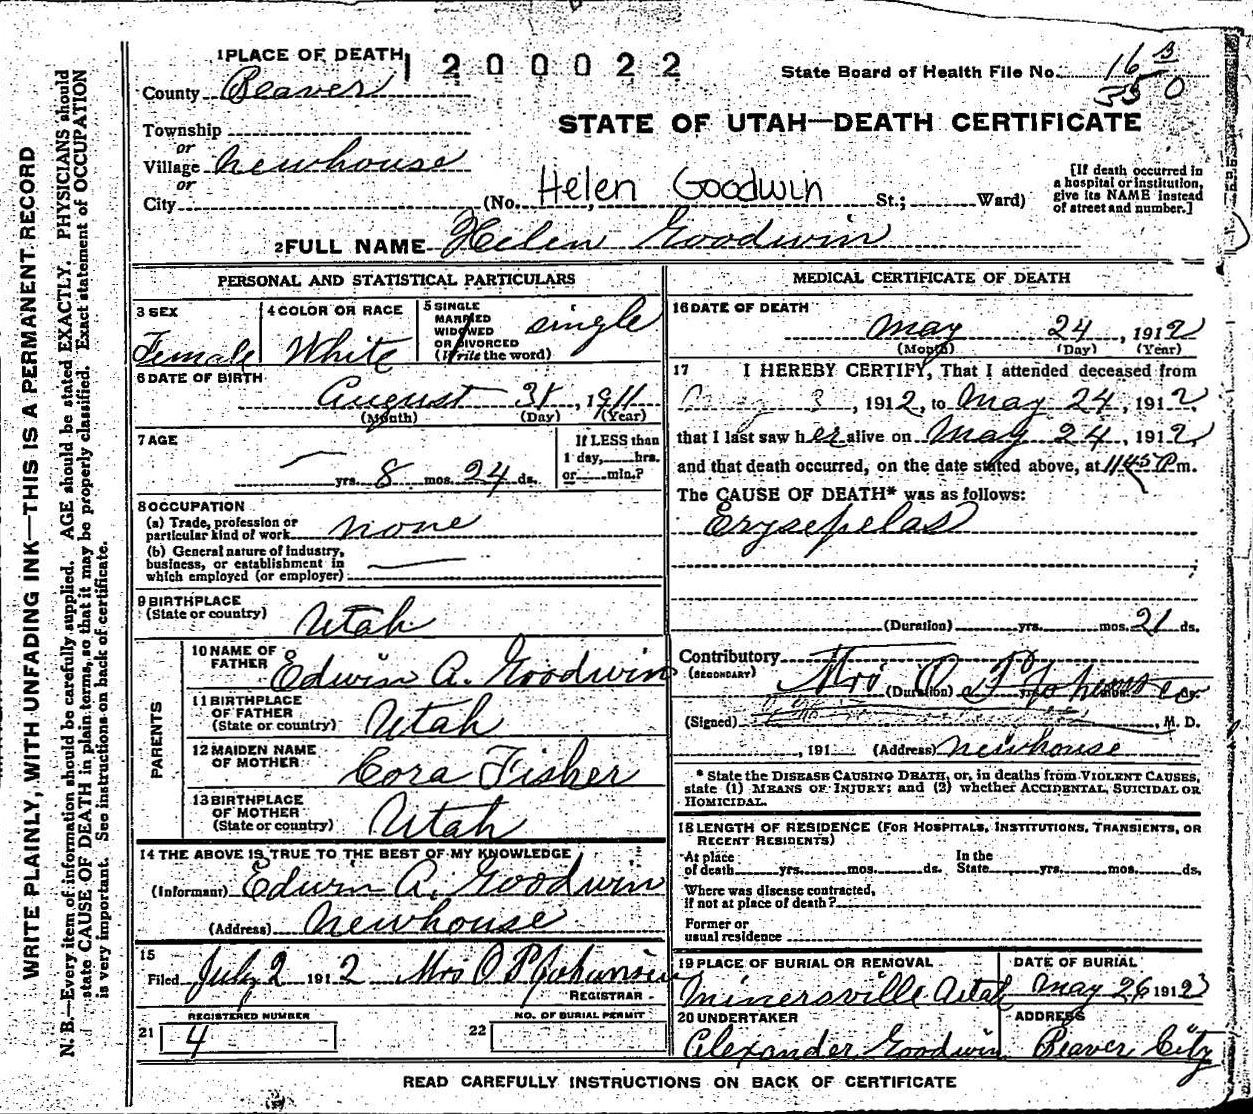 1 PLACE OF DEATH
1200022
State Board of Health File No. 16
County Beaver
STATE OF UTAH—DEATH CERTIFICATE
Township
or
Village Newhouse
or
City (No. Helen Goodwin St.; Ward)
[If death occurred in a hospital or institution, give its NAME instead of street and number.]
2 FULL NAME Helen Goodwin
PERSONAL AND STATISTICAL PARTICULARS
3 SEX
Female
4 COLOR OR RACE
White
5 SINGLE
MARRIED
WIDOWED
OR DIVORCED
(Write the word)
single
6 DATE OF BIRTH
August 31, 1911
(Month) (Day) (Year)
7 AGE
yrs. 8 mos. 24 ds.
If LESS than
1 day, hrs.
or min.?
8 OCCUPATION
(a) Trade, profession or
particular kind of work none
(b) General nature of industry,
business, or establishment in
which employed (or employer)
9 BIRTHPLACE
(State or country) Utah
PARENTS
10 NAME OF
FATHER Edwin A. Goodwin
11 BIRTHPLACE
OF FATHER
(State or country) Utah
12 MAIDEN NAME
OF MOTHER Cora Fisher
13 BIRTHPLACE
OF MOTHER
(State or country) Utah
14 THE ABOVE IS TRUE TO THE BEST OF MY KNOWLEDGE
(Informant) Edwin A. Goodwin
(Address) Newhouse
15
Filed July 2 1912 Mrs O P Johanson
REGISTRAR
REGISTERED NUMBER
21 4
NO. OF BURIAL PERMIT
22
MEDICAL CERTIFICATE OF DEATH
16 DATE OF DEATH
May 24, 1912
(Month) (Day) (Year)
17 I HEREBY CERTIFY, That I attended deceased from
3, 1912, to May 24, 1912,
that I last saw her alive on May 24, 1912,
and that death occurred, on the date stated above, at 1145 P m.
The CAUSE OF DEATH* was as follows:
Erysepelas
(Duration) yrs. mos. 21 ds.
Contributory
(SECONDARY)
Mrs O P
(Duration)
(Signed) , M. D.
, 191 (Address) Newhouse
* State the DISEASE CAUSING DEATH, or, in deaths from VIOLENT CAUSES,
state (1) MEANS OF INJURY; and (2) whether ACCIDENTAL, SUICIDAL OR
HOMICIDAL.
18 LENGTH OF RESIDENCE (FOR HOSPITALS, INSTITUTIONS, TRANSIENTS, OR
RECENT RESIDENTS)
At place
of death yrs. mos. ds.
In the
State yrs. mos. ds.
Where was disease contracted,
if not at place of death?
Former or
usual residence
19 PLACE OF BURIAL OR REMOVAL
Minersville Utah
DATE OF BURIAL
May 26 1912
20 UNDERTAKER
Alexander Goodwin
ADDRESS
Beaver City
READ CAREFULLY INSTRUCTIONS ON BACK OF CERTIFICATE
WRITE PLAINLY, WITH UNFADING INK—THIS IS A PERMANENT RECORD
N. B.—Every item of information should be carefully supplied. AGE should be stated EXACTLY. PHYSICIANS should
state CAUSE OF DEATH in plain terms, so that it may be properly classified. Exact statement of OCCUPATION
is very important. See instructions on back of certificate.